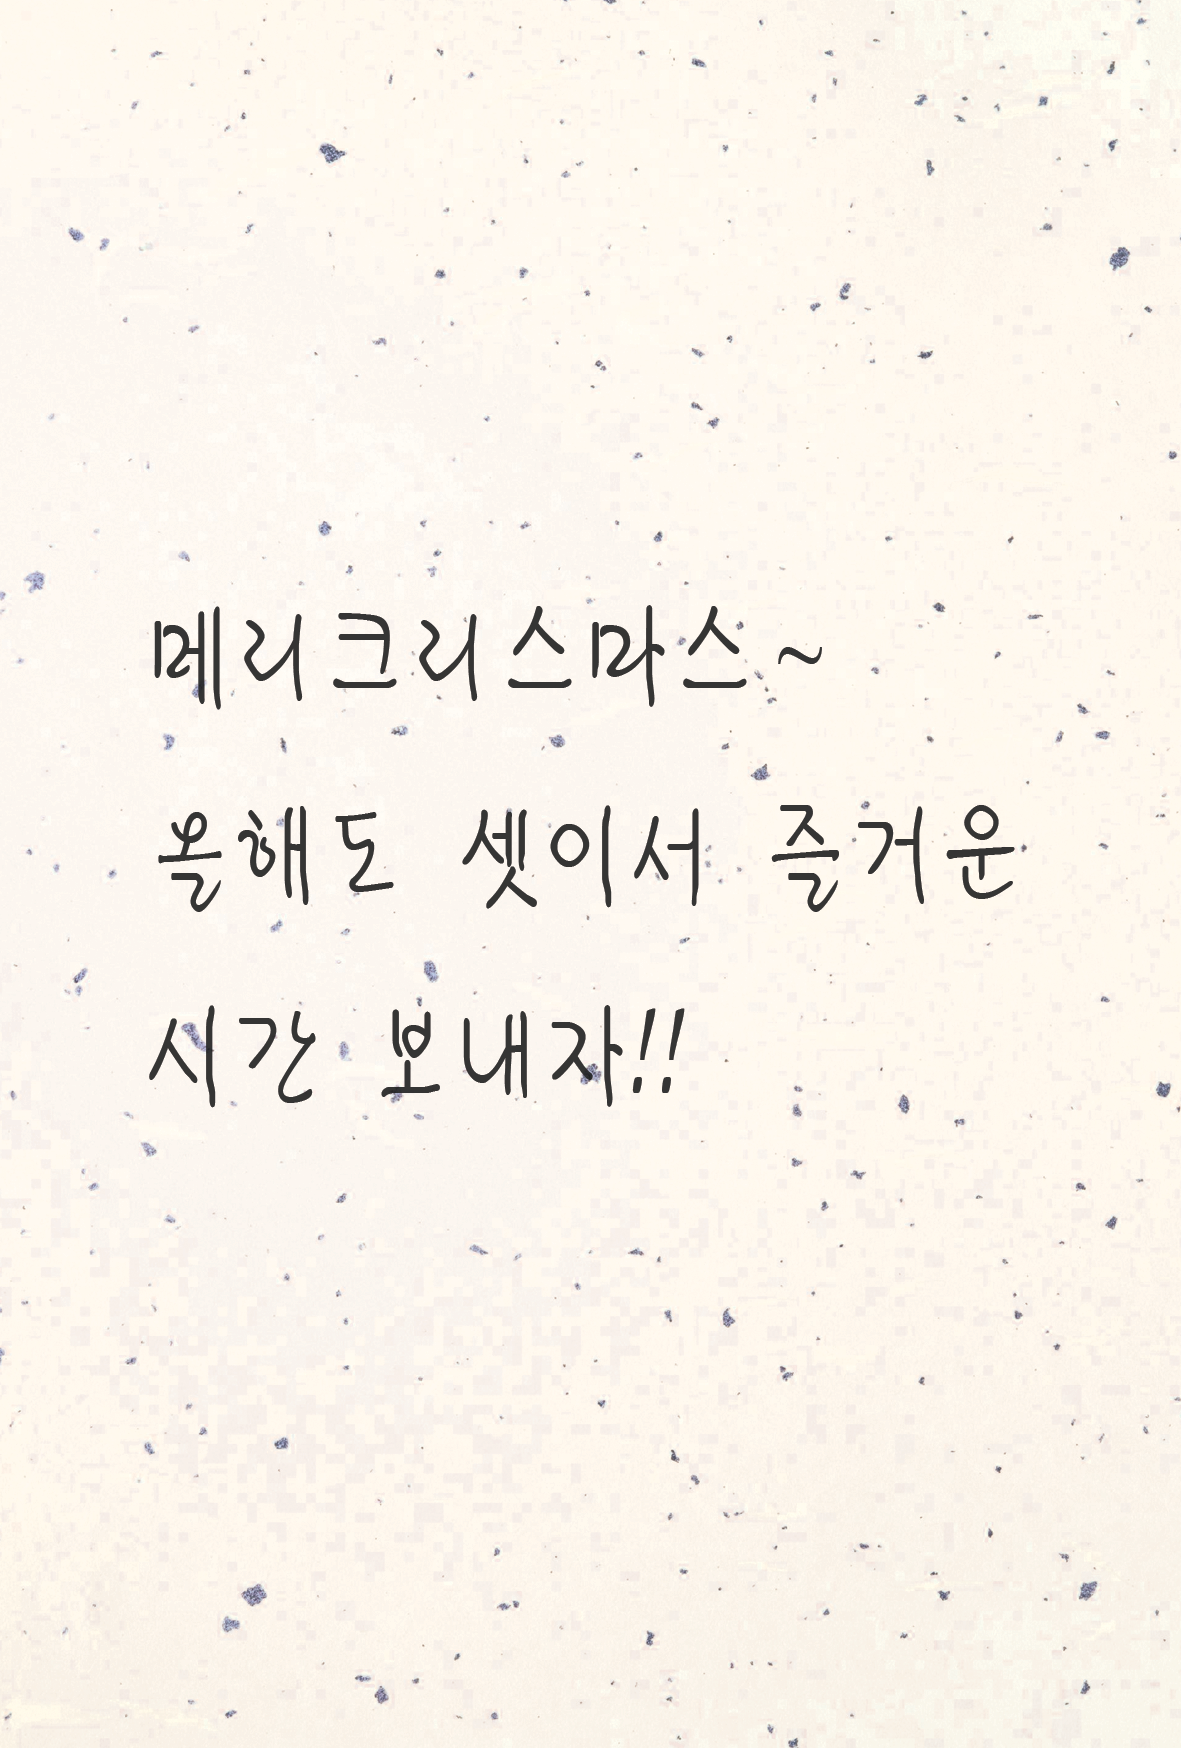 메리크리스마스~
올해도 셋이서 즐거운
시간 보내자!!